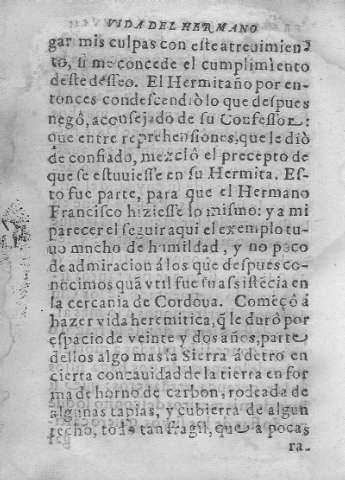 VIDA DEL HERMANO
gar mis culpas con este atreuimien
to, si me concede el cumplimiento
deste desseo. El Hermitaño por en-
tonces condescendiò lo que despues
negô, aconsejado de su Confessor:
que entre reprehensiones, que le diò
de confiado, mezclô el precepto de
que se estuuiesse en su Hermita. Es-
to fue parte, para que el Hermano
Francisco hiziesse lo mismo: y a mi
parecer el seguir aqui el exemplo tu-
uo mncho de humildad, y no poco
de admiracion á los que despues co-
nocimos quã vtil fue su assistẽcia en
la cercania de Cordoua. Começô á
hazer vida heremitica, q̃ le durò por
espacio de veinte y dos años, parte
dellos algo mas la Sierra á dẽtro en
cierta concauidad de la tierra en for
ma de horno de carbon, rodeada de
algunas tapias, y cubierta de algun
techo, todo tan fragil, que a pocas
ra-